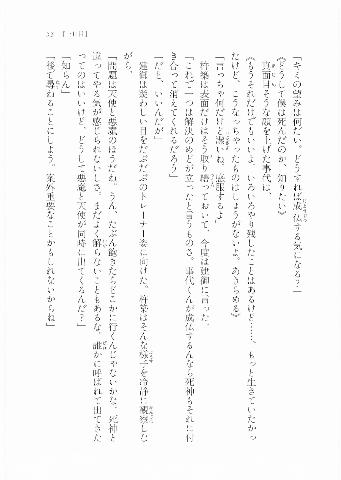 「キミの望みは何だい。どうすれば成仏する気になる？」
《どうして僕は死んだのか、知りたい》
真面目そうな顔を上げた事代は、
《もうそれだけでもいいよ。いろいろやり残したことはあるけど……、もっと生きていたかっ
たけど、こうなっちゃったものはしょうがないよ。あきらめる》
「言っちゃ何だけど潔いね。感服するよ」
杵築は表面だけはそう取り繕っておいて、今度は建御に言った。
「これで一つは解決のめどが立ったと言うものさ。事代くんが成仏するんなら死神もそれに付
き合って消えてくれるだろう」
「だと、いいんだが」
建御は淡わしい目をだぶだぶのトレーナー姿に向けた。杵築はそんな様子を冷静に観察しな
がら、
「問題は天使と悪魔のほうだね。うん、たぶん飽きたらどこかに行くんじゃないかな。死神と
違ってやる気が感じられないしさ。まだよく解らないこともあるな。誰かに呼ばれて出てきた
ってのはいいけど、どうして悪魔と天使が同時に出てくるんだ？」
「知らん」
「後で尋ねることにしよう。案外重要なことかもしれないからね」